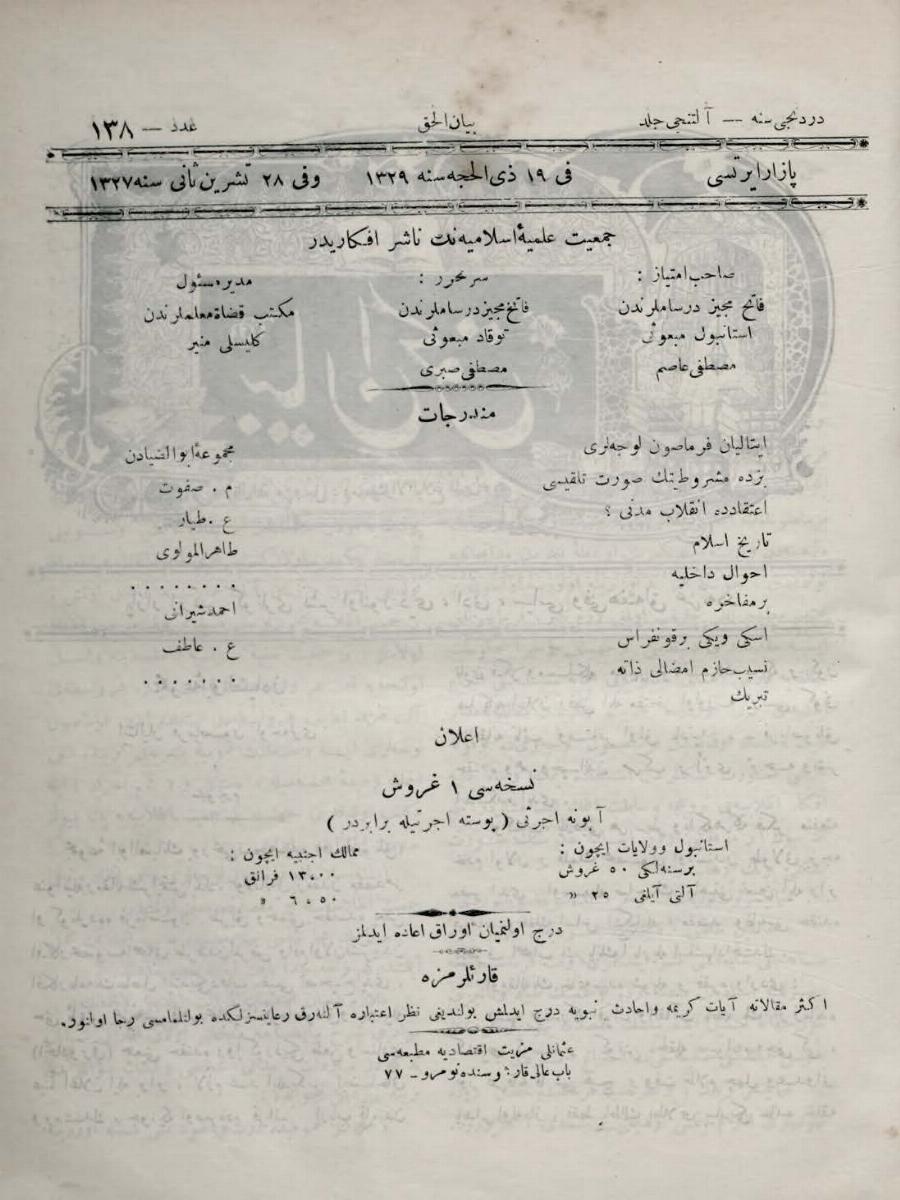 دردنجی سنه — آلتنجی جلد
بیان الحق
عدد — ١٣٨
پازار ایرتسی
فی ١٩ ذی الحجه سنه ١٣٢٩
وفی ٢٨ تشرین ثانی سنه ١٣٢٧
جمعیت علمیهٔ اسلامیه‌نك ناشر افکاریدر
صاحب امتیاز :
فاتح مجیز درساملرندن
استانبول مبعوثی
مصطفی عاصم
سرمحرر :
فاتح مجیز درساملرندن
توقاد مبعوثی
مصطفی صبری
مدیر مسئول
مکتب قضاة معلملرندن
کلیسلی منیر
مندرجات
ایتالیان فرماصون لوجه‌لری
مجموعهٔ ابوالضیادن
بزده مشروطیتك صورت تلقیسی
م . صفوت
اعتقادده انقلاب مدنی ؟
ع . طیار
تاریخ اسلام
طاهر المولوی
احوال داخلیه
. . . . . . . .
بر مفاخره
احمد شیرانی
اسکی ویکی بر قونفراس
ع . عاطف
نسیب حازم امضالی ذاته
. . . . . . .
تبریك
اعلان
نسخه‌سی ١ غروش
آبونه اجرتی ( پوسته اجرتیله برابردر )
استانبول وولایات ایچون :
برسنه‌لکی ٥٠ غروش
آلتی آیلغی ٢٥ »
ممالك اجنبیه ایچون :
١٣،٠٠ فرانق
٦،٥٠ »
درج اولنمیان اوراق اعاده ایدلمز
قارئلرمزه
اکثر مقالاته آیات کریمه واحادث نبویه درج ایدلمش بولندیغی نظر اعتباره آلنه‌رق رعایتسزلکده بولنلمامسی رجا اولنور.
عثمانلی مزیت اقتصادیه مطبعه‌سی
باب عالی قارشوسنده نومرو - ٧٧